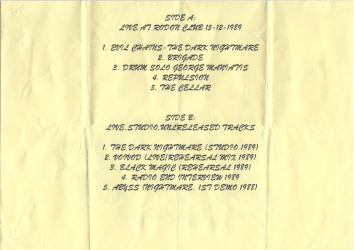 SIDE A:
LIVE AT RODON CLUB 15-12-1989
1. EVIL CHAINS-THE DARK NIGHTMARE
2. BRIGADE
3. DRUM SOLO GEORGE MANIATIS
4. REPULSION
5. THE CELLAR
SIDE B:
LIVE,STUDIO,UNLRELEASED TRACKS
1. THE DARK NIGHTMARE (STUDIO 1989)
2. VOIVOD (LIVE)REHEARSAL MIX 1989)
3. BLACK MAGIC (REHEARSAL 1989)
4. RADIO END INTERVIEW 1989
5. ABYSS (NIGHTMARE, 1ST DEMO 1988)